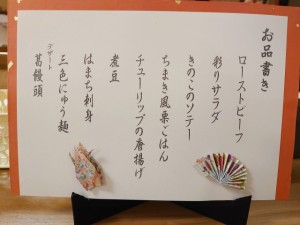 お品書き
ローストビーフ
彩りサラダ
きのこのソテー
ちまき風栗ごはん
チューリップの唐揚げ
煮豆
はまち刺身
三色にゅう麺
デザート
葛饅頭